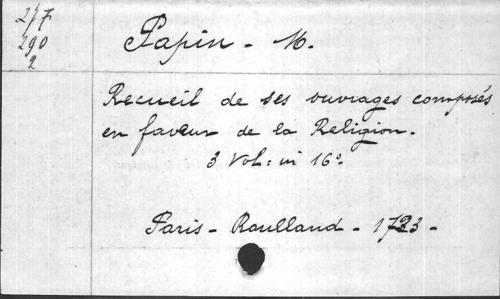 277
290
2
Papin - M.
Recueil de ses ouvrages composés
en faveur de la Religion.
3 Vol: in 16º.
Paris - Roulland - 1723 -